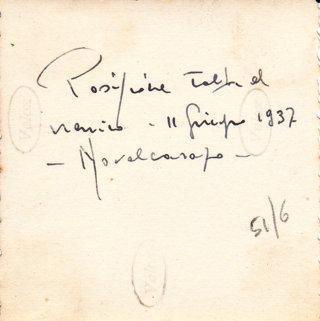 Posizione tolta al
nemico - 11 Giugno 1937
51/6